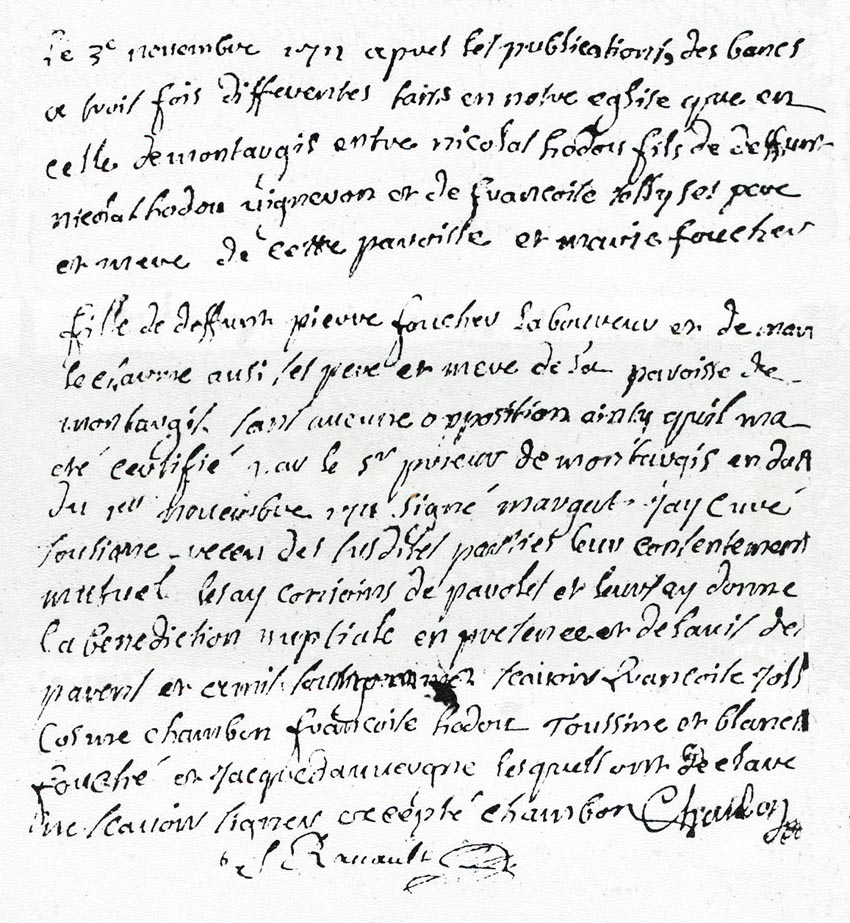 Le 3e novembre 1711 apres les publications des bancs
a trois fois differentes faits en notre eglise que en
celle de montaugis entre nicolas hodou fils de deffunt
nicolas hodou vigneron et de francoise jolly ses pere
et mere de cette paroisse et marie foucher
fille de deffunt pierre foucher laboureur et de mari
lecharne ausi ses pere et mere de la paroisse de
montaugis sans aucune opposition ainsy quil ma
eté certifié par le Sr prieur de montaugis en dat
du 1er novembre 1711 signé margat jay Curé
sousigne receu des susdites parties leur consentement
mutuel lesay conjoins de paroles et leursay donne
la benediction nuptiale en presence et de lavis de
parens et amis scavoir francoise Joll
Cosme chambon francoise hodou Toussine et blanch
fouché et Jacque dauvergne lesquels ont declare
ne scavoir signer excepté chambon Chambon
Ranault